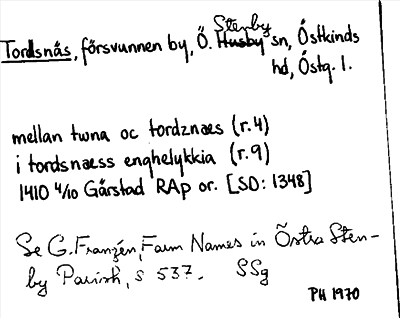 Stenby
Tordsnäs, försvunnen by, Ö. Husby sn, Östkinds
hd, Östg. l.
mellan twna oc tordznaes (r.4)
i tordsnaess enghelykkia (r.9)
1410 4/10 Gärstad RAp or. [SD: 1348]
Se G. Franzén, Farm Names in Östra Sten-
by Parish, s 537. SSg
PH 1970